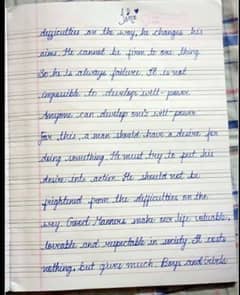 difficulties on the way, he changes his
aims. He cannot be firm to one thing
So he is always failure. It is not
impossible to develop will-power.
Anyone can develop one's will-power
For this, a man should have a desire for
doing something. He must try to put his
desire into action. He should not be
frightened from the difficulties on the
way. Good Manners make our life valuable,
loveable and respectable in society. It costs
nothing, but gives much. Boys and Girls